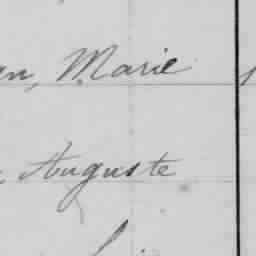 an, Marie
Auguste